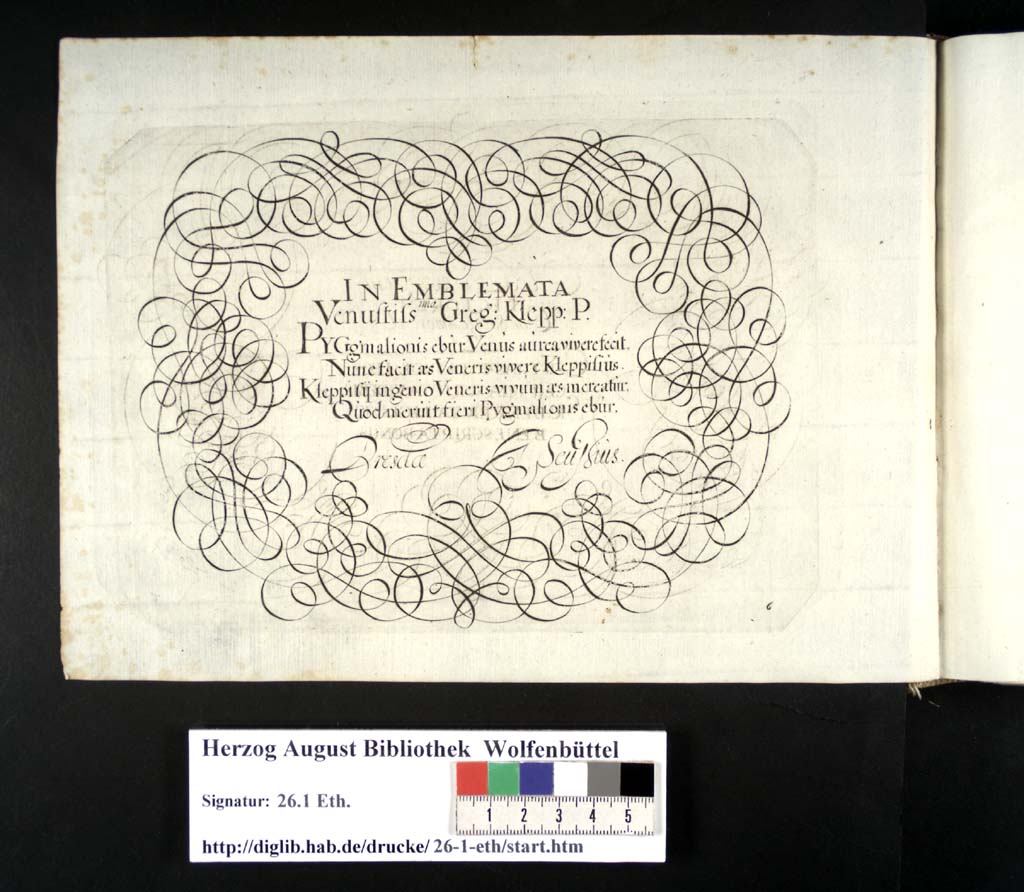 IN EMBLEMATA
Venustiss^ima Greg: Klepp: P.
PYGgmalionis ebùr Venùs aùrea vivere fecit.
Nùnc facit æs Veneris vivere Kleppisiùs.
Kleppisij ingenio Veneris vivùm æs mereatùr,
Qùod merùit fieri Pygmalionis ebùr.
Dresdæ
6
Herzog August Bibliothek Wolfenbüttel
Signatur: 26.1 Eth.
1 2 3 4 5
http://diglib.hab.de/drucke/ 26-1-eth/start.htm